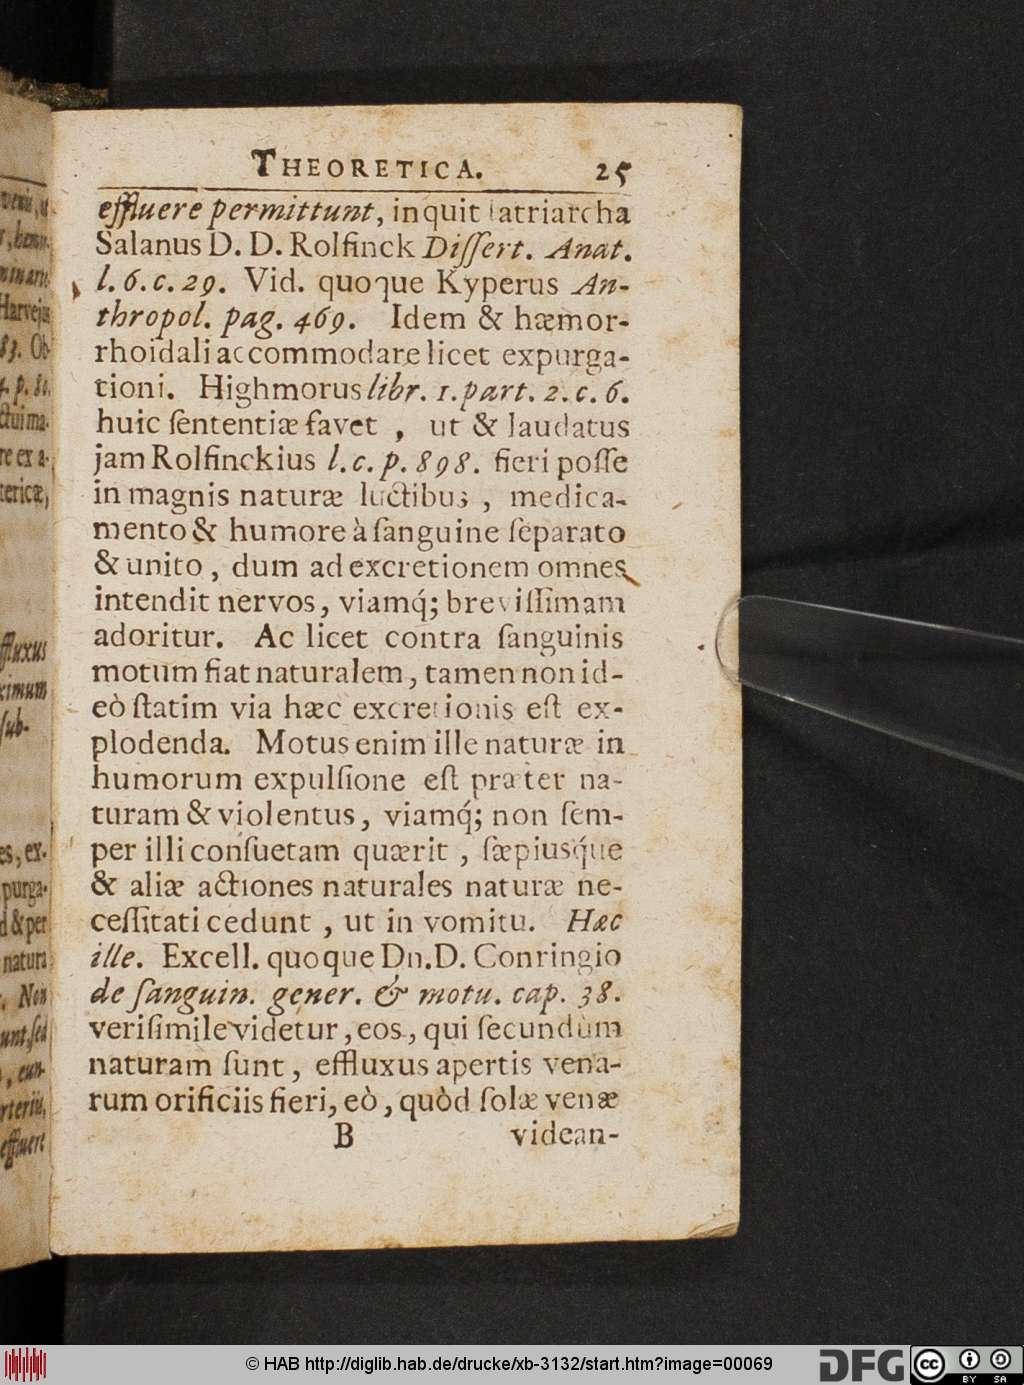 THEORETICA. 25
effluere permittunt, inquit Iatriarcha
Salanus D. D. Rolfinck Dissert. Anat.
l. 6. c. 29. Vid. quoque Kyperus An-
thropol. pag. 469. Idem & hæmor-
rhoidali accommodare licet expurga-
tioni. Highmorus libr. 1. part. 2. c. 6.
huic ſententiæ favet, ut & laudatus
jam Rolfinckius l. c. p. 898. fieri poſſe
in magnis naturæ luctibus, medica-
mento & humore à ſanguine ſeparato
& unito, dum ad excretionem omnes
intendit nervos, viamq́; breviſſimam
adoritur. Ac licet contra ſanguinis
motum fiat naturalem, tamen non id-
eò ſtatim via hæc excretionis eſt ex-
plodenda. Motus enim ille naturæ in
humorum expulſione eſt præter na-
turam & violentus, viamq́; non ſem-
per illi conſuetam quærit, ſæpiusq́ue
& aliæ actiones naturales naturæ ne-
ceſſitati cedunt, ut in vomitu. Hæc
ille. Excell. quoque Dn. D. Conringio
de ſanguin. gener. & motu. cap. 38.
veriſimile videtur, eos, qui ſecundùm
naturam ſunt, effluxus apertis vena-
rum orificiis fieri, eò, quòd ſolæ venæ
B videan-
© HAB http://diglib.hab.de/drucke/xb-3132/start.htm?image=00069
DFG
cc BY SA